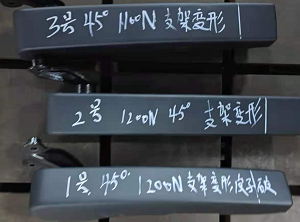 3号 45° 1100N 支架变形
2号 1200N 45° 支架变形
1号 45° 1200N支架变形皮刺破